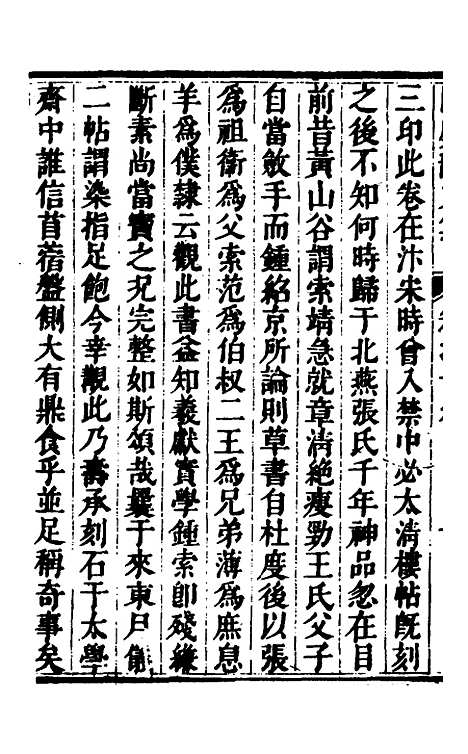 三印此卷在汴宋時曾入禁中必太清樓帖既刻
之後不知何時歸于北燕張氏千年神品忽在目
前昔黃山谷謂索靖急就章清絶瘦勁王氏父子
自當斂手而鍾紹京所論則草書自杜度後以張
爲祖衛爲父索范爲伯叔二王爲兄弟薄爲庶息
羊爲僕隸云觀此書益知羲獻實學鍾索卽殘縑
斷素尚當寶之況完整如斯頌哉曩于來東尸
二帖謂染指足飽今幸觀此乃壽承刻石于太學
齋中誰信苜蓿盤側大有鼎食乎並足稱奇事矣